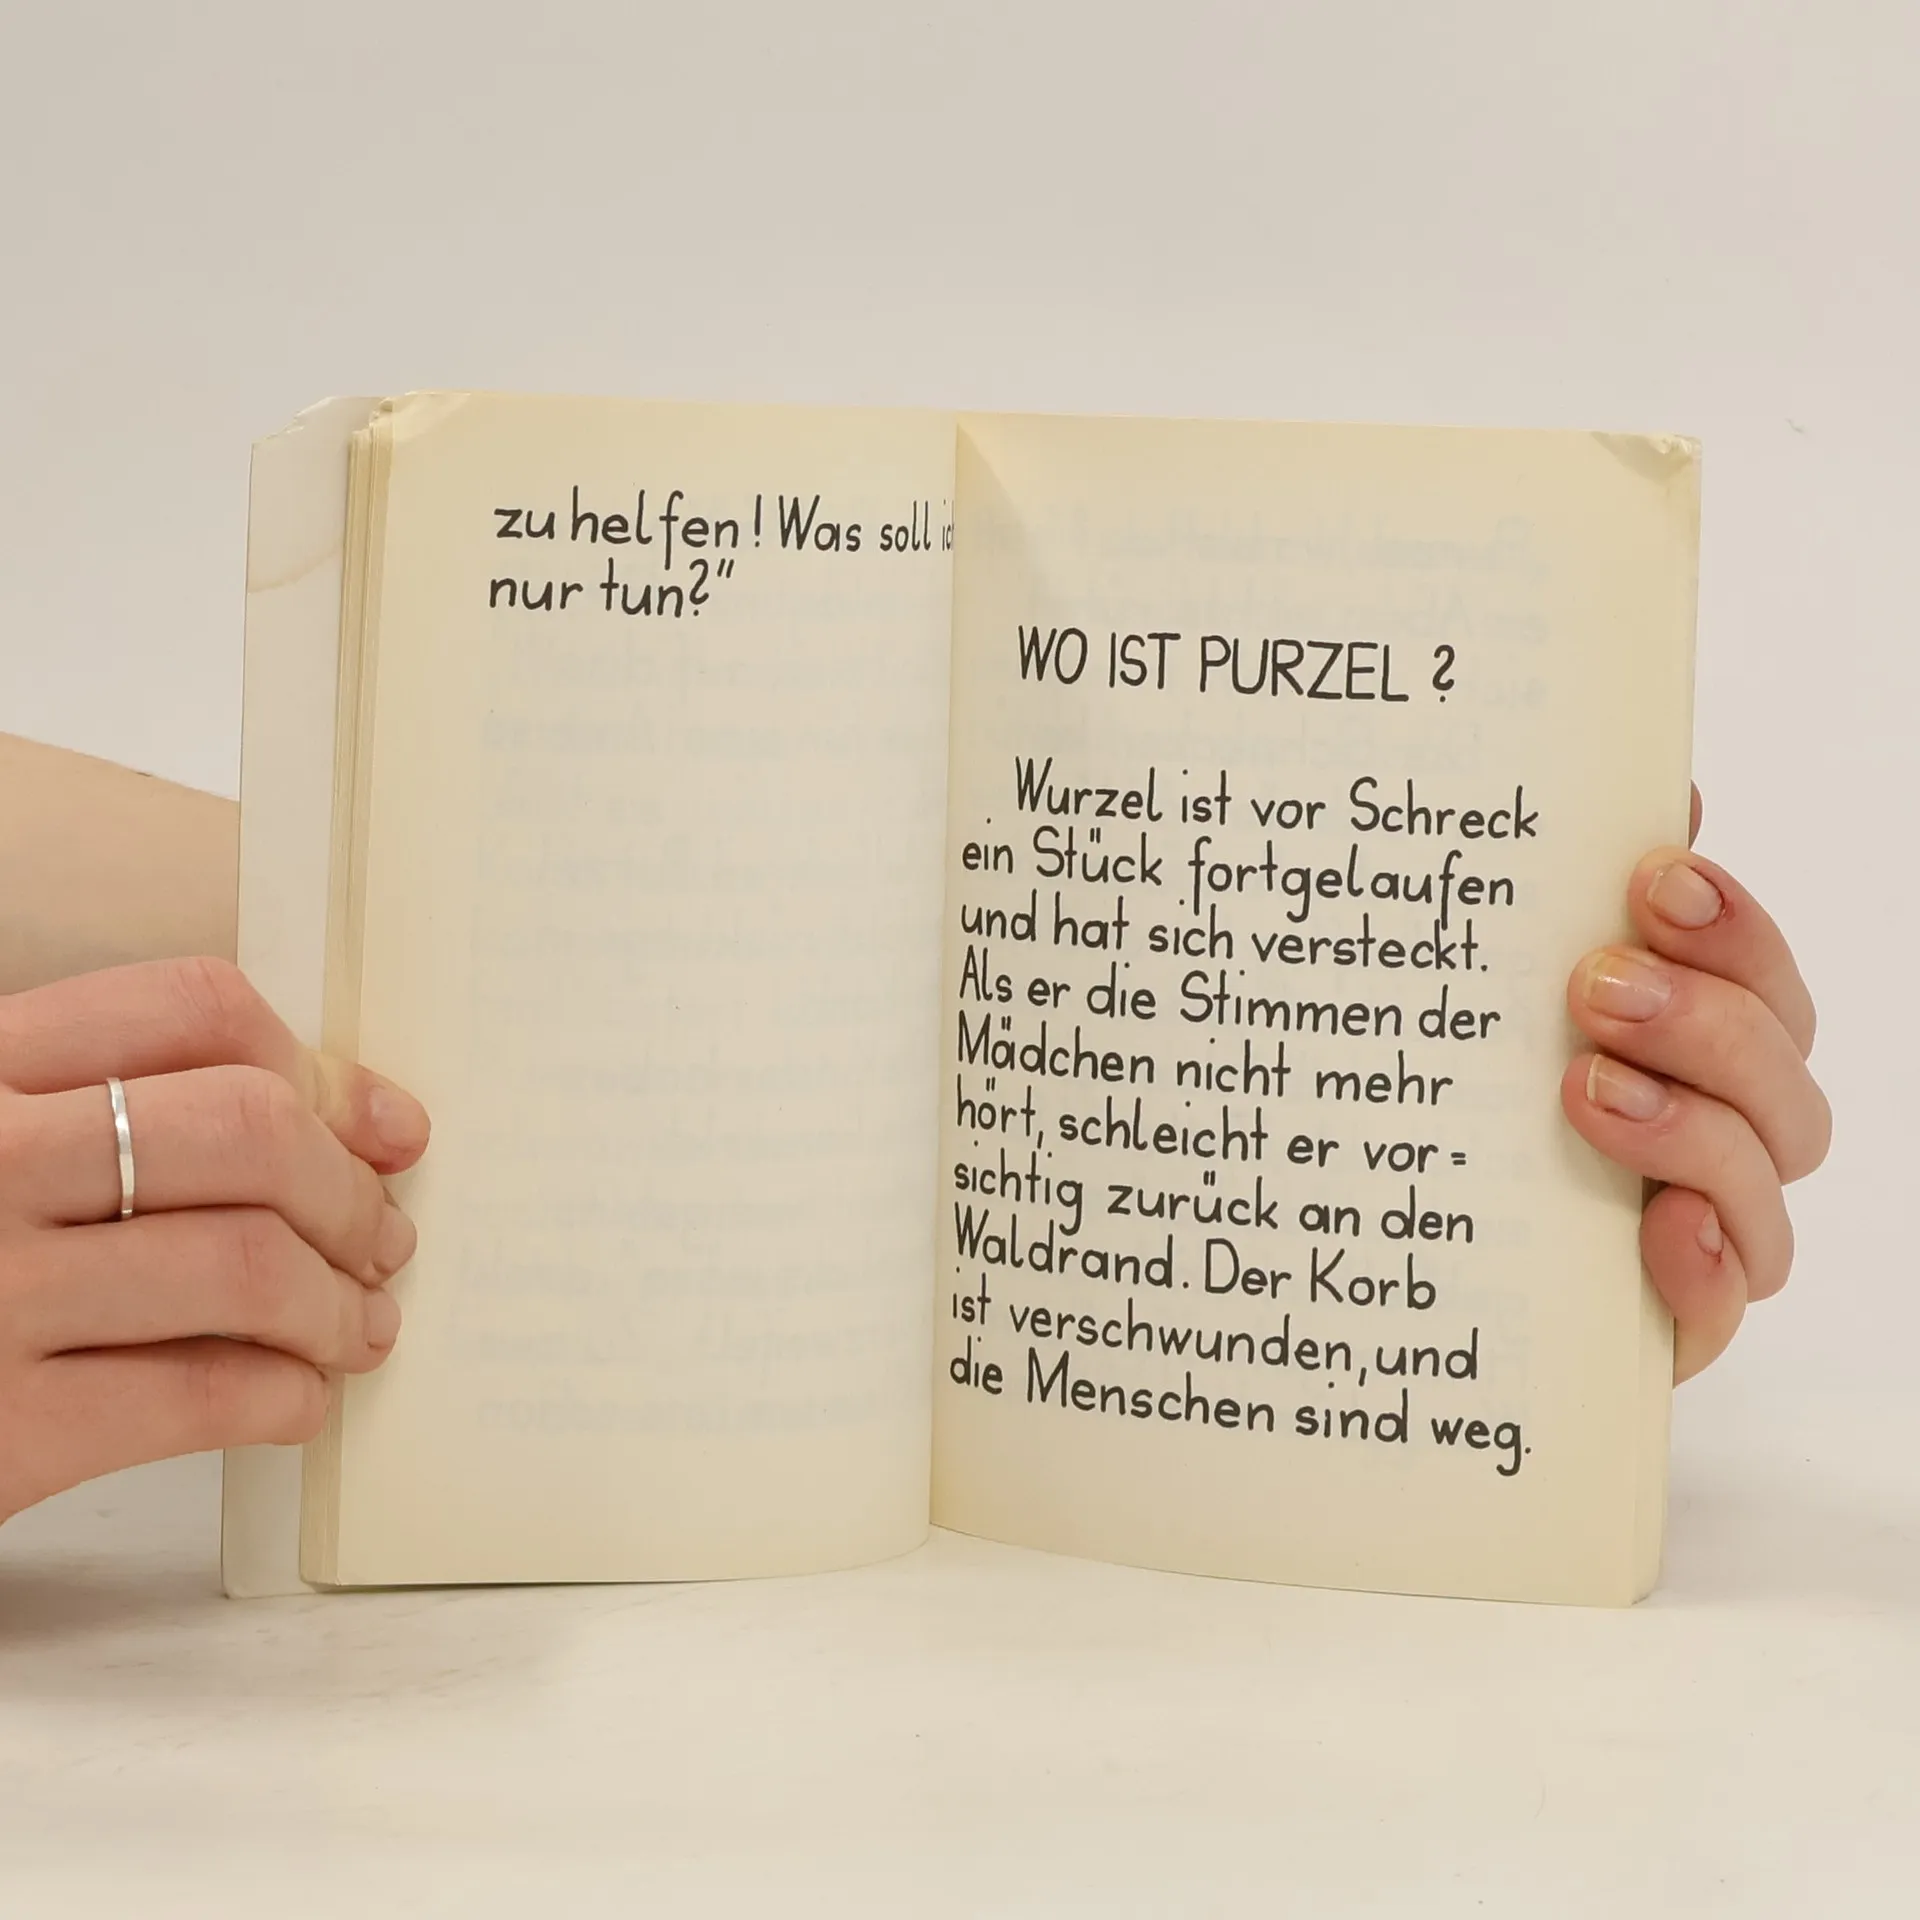 zu helfen! Was soll
nur tun?"
WO IST PURZEL ?
Wurzel ist vor Schreck
ein Stück fortgelaufen
und hat sich versteckt.
Als er die Stimmen der
Mädchen nicht mehr
hört, schleicht er vor=
sichtig zurück an den
Waldrand. Der Korb
ist verschwunden, und
die Menschen sind weg.